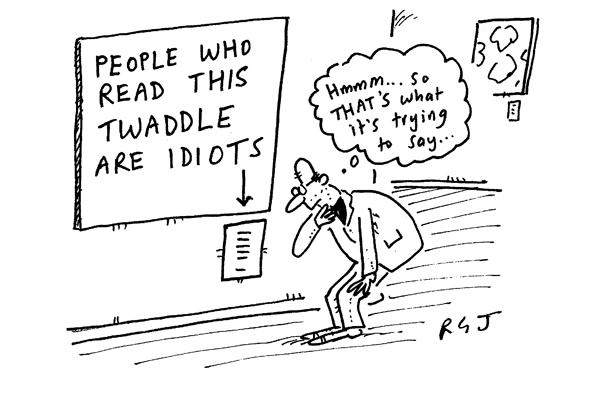 PEOPLE WHO
READ THIS
TWADDLE
ARE IDIOTS
Hmmm... so
THAT'S what
it's trying
to say...
RGJ